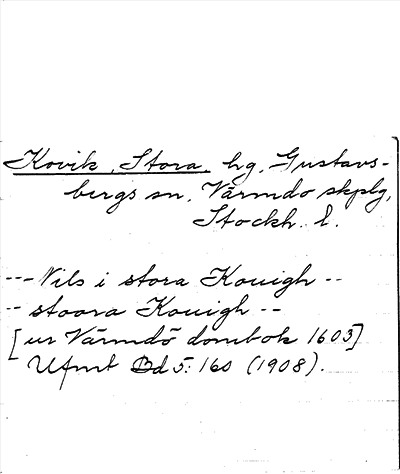 Kovik, Stora, hg, Gustavs-
bergs sn, Värmdö skplg,
Stockh. l.
--- Nils i stora Kouigh --
-- stoora Kouigh --
[ur Värmdö dombok 1603]
Ufmt Bd 5: 160 (1908).